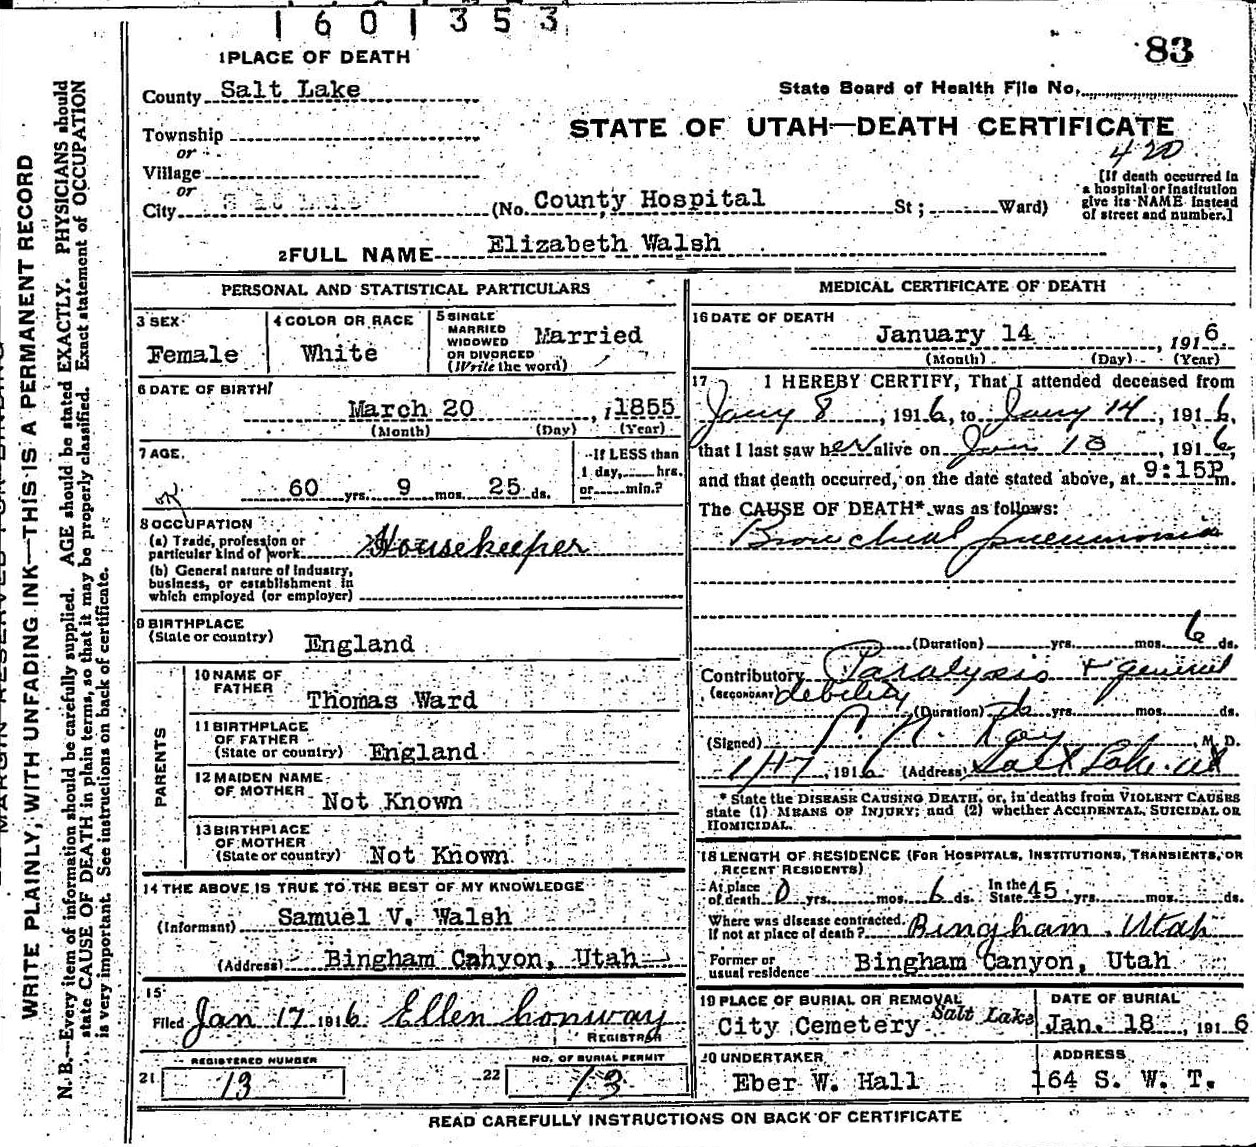 1601353
83
1 PLACE OF DEATH
County Salt Lake
State Board of Health File No.
STATE OF UTAH—DEATH CERTIFICATE
420
Township
or
Village
or
City Salt Lake (No. County Hospital St; Ward)
[If death occurred in a hospital or institution give its NAME instead of street and number.]
2 FULL NAME Elizabeth Walsh
PERSONAL AND STATISTICAL PARTICULARS
3 SEX Female
4 COLOR OR RACE White
5 SINGLE MARRIED WIDOWED OR DIVORCED (Write the word) Married
6 DATE OF BIRTH
March 20, 1855
(Month) (Day) (Year)
7 AGE
60 yrs. 9 mos. 25 ds.
If LESS than 1 day, hrs. or min.?
8 OCCUPATION
(a) Trade, profession or particular kind of work Housekeeper
(b) General nature of industry, business, or establishment in which employed (or employer)
9 BIRTHPLACE
(State or country) England
PARENTS
10 NAME OF FATHER Thomas Ward
11 BIRTHPLACE OF FATHER (State or country) England
12 MAIDEN NAME OF MOTHER Not Known
13 BIRTHPLACE OF MOTHER (State or country) Not Known
14 THE ABOVE IS TRUE TO THE BEST OF MY KNOWLEDGE
(Informant) Samuel V. Walsh
(Address) Bingham Canyon, Utah
15
Filed Jan 17 1916 Ellen Conway
REGISTRAR
REGISTERED NUMBER
21 13
NO. OF BURIAL PERMIT
22 13
MEDICAL CERTIFICATE OF DEATH
16 DATE OF DEATH
January 14, 1916
(Month) (Day) (Year)
17 I HEREBY CERTIFY, That I attended deceased from
Jany 8, 1916, to Jany 14, 1916,
that I last saw her alive on Jan 10, 1916,
and that death occurred, on the date stated above, at 9:15P m.
The CAUSE OF DEATH* was as follows:
Bronchial pneumonia
(Duration) yrs. mos. 6 ds.
Contributory Paralysis + general
(SECONDARY) debility
(Duration) yrs. mos. ds.
(Signed) M. D.
1/17, 1916 (Address) Salt Lake Ut
* State the DISEASE CAUSING DEATH, or, in deaths from VIOLENT CAUSES
state (1) MEANS OF INJURY; and (2) whether ACCIDENTAL, SUICIDAL OR
HOMICIDAL.
18 LENGTH OF RESIDENCE (FOR HOSPITALS, INSTITUTIONS, TRANSIENTS, OR
RECENT RESIDENTS)
At place of death 0 yrs. mos. 6 ds. In the State 45 yrs. mos. ds.
Where was disease contracted, If not at place of death? Bingham, Utah
Former or usual residence Bingham Canyon, Utah
19 PLACE OF BURIAL OR REMOVAL
City Cemetery Salt Lake
DATE OF BURIAL
Jan. 18, 1916
20 UNDERTAKER
Eber W. Hall
ADDRESS
164 S. W. T.
READ CAREFULLY INSTRUCTIONS ON BACK OF CERTIFICATE
MARGIN RESERVED FOR BINDING
WRITE PLAINLY, WITH UNFADING INK—THIS IS A PERMANENT RECORD
N. B.—Every item of information should be carefully supplied. AGE should be stated EXACTLY. PHYSICIANS should
state CAUSE OF DEATH in plain terms, so that it may be properly classified. Exact statement of OCCUPATION
is very important. See instructions on back of certificate.